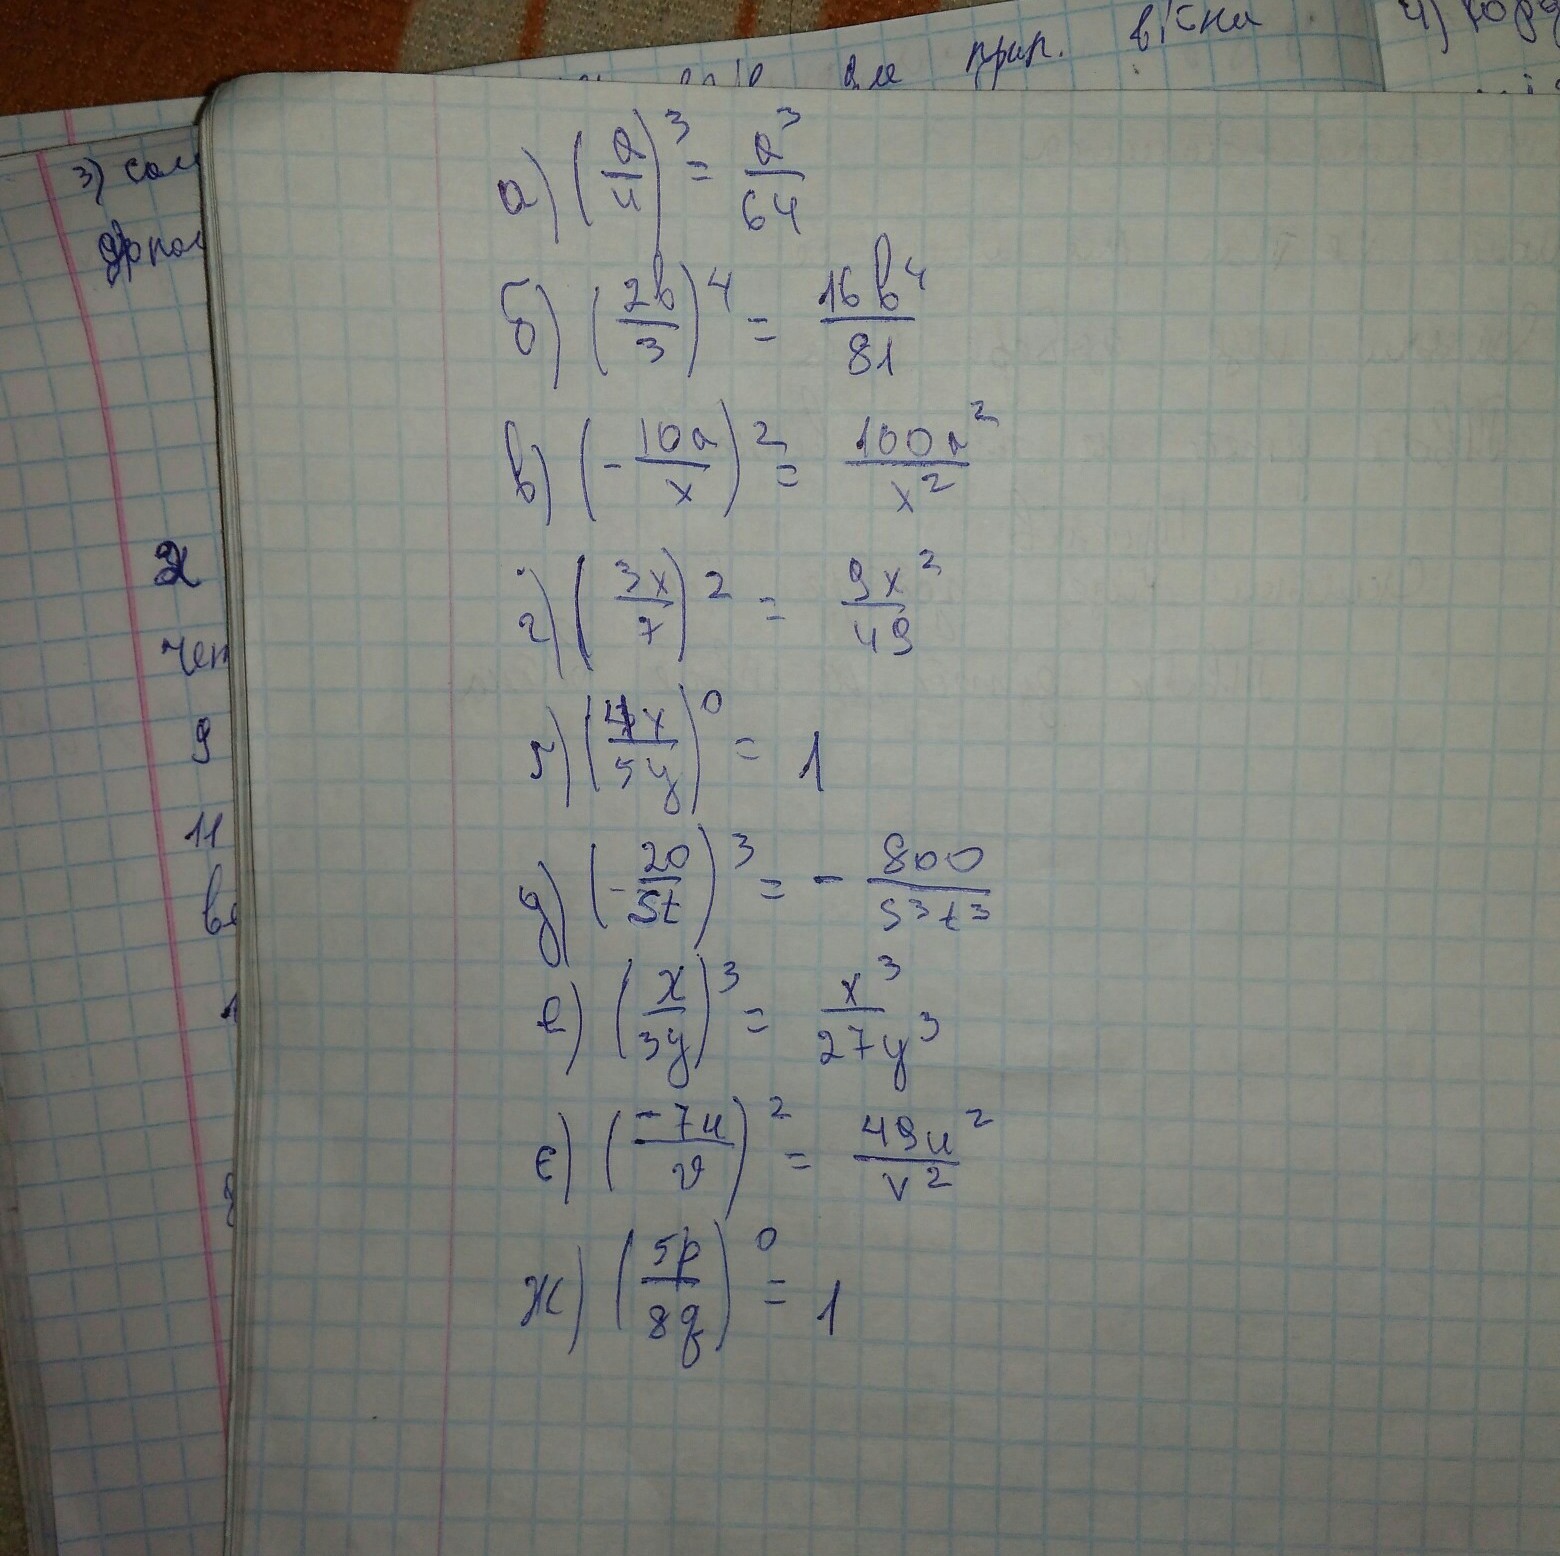 для прип. вісна
4)
3) сам
а) (a/4)³ = a³/64
б) (2b/3)⁴ = 16b⁴/81
в) (-10a/x)² = 100a²/x²
г) (3x/7)² = 9x²/49
ґ) (4x/5y)⁰ = 1
д) (-20/st)³ = - 800/s³t³
е) (x/3y)³ = x³/27y³
є) (-7u/v)² = 49u²/v²
ж) (5p/8q)⁰ = 1
9
11